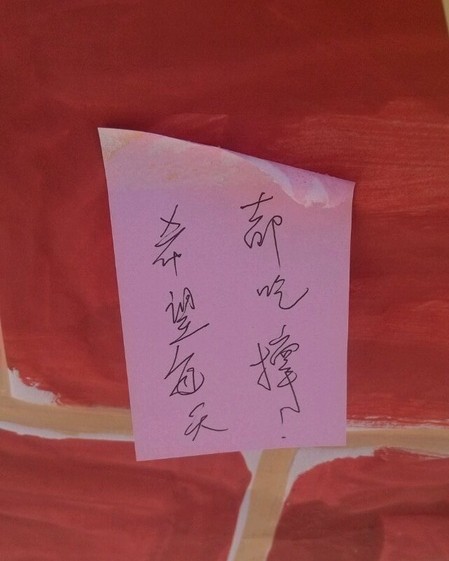 希望每天
都吃撑!